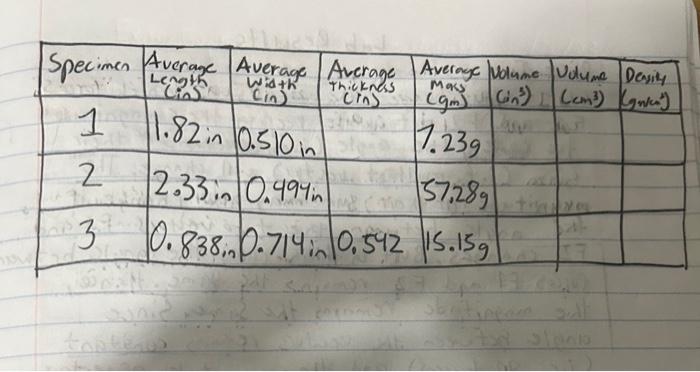 Specimen Average Length (in) Average Width (in) Average Thickness (in) Average Mass (gm) Volume (in³) Volume (cm³) Density (gm/cm³)
1 1.82 in 0.510 in 7.23g
2 2.33 in 0.494 in 57.28g
3 0.838 in 0.714 in 0.592 15.15g